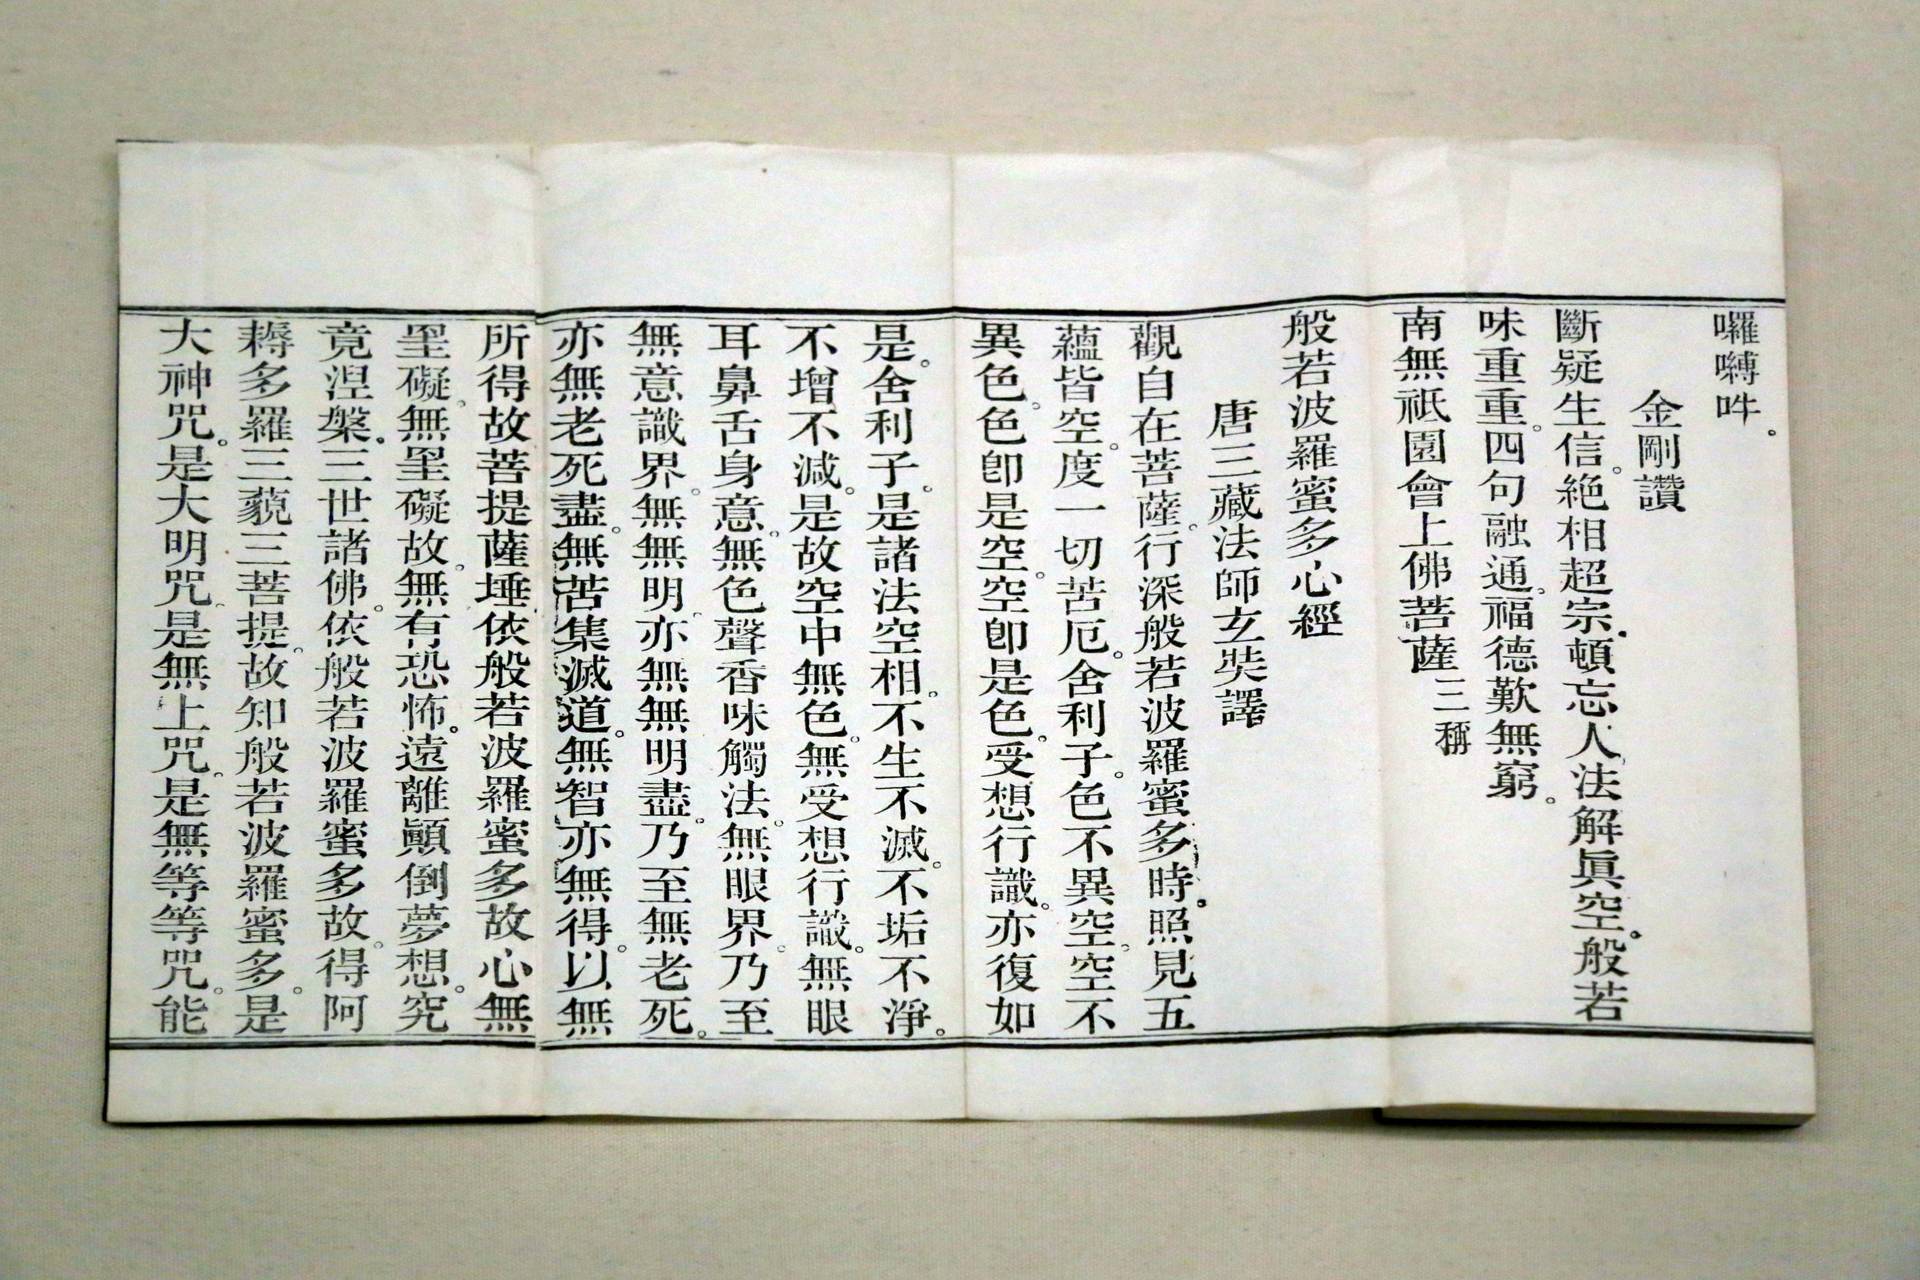 囉嚩吽。
金剛讚
斷疑生信。絶相超宗。頓忘人法解眞空。般若
味重重。四句融通。福德歎無窮。
南無祇園會上佛菩薩三稱
般若波羅蜜多心經
唐三藏法師玄奘譯
觀自在菩薩。行深般若波羅蜜多時。照見五
蘊皆空。度一切苦厄。舍利子。色不異空。空不
異色。色卽是空。空卽是色。受想行識。亦復如
是。舍利子。是諸法空相。不生不滅。不垢不淨。
不增不減。是故空中無色。無受想行識。無眼
耳鼻舌身意。無色聲香味觸法。無眼界。乃至
無意識界。無無明。亦無無明盡。乃至無老死。
亦無老死盡。無苦集滅道。無智亦無得。以無
所得故菩提薩埵依般若波羅蜜多故心無
罣礙。無罣礙故。無有恐怖。遠離顚倒夢想。究
竟涅槃。三世諸佛。依般若波羅蜜多故。得阿
耨多羅三藐三菩提。故知般若波羅蜜多。是
大神咒。是大明咒。是無上咒。是無等等咒。能